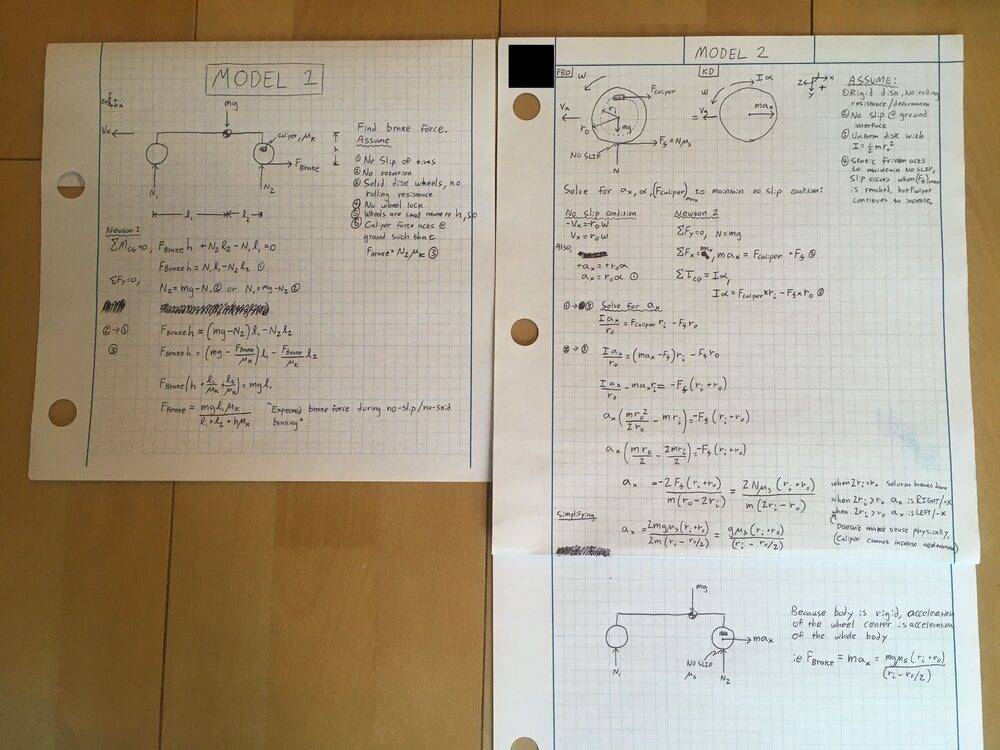 MODEL 1
mg
Vx
Caliper, μK
h
FBrake
N1
N2
l1
l2
Find brake force.
Assume
① No Slip of tires
② No rotation
③ Solid disk wheels, no
rolling resistance
④ No wheel lock
⑤ Wheels are small relative to h, so
⑥ Caliper force acts @
ground such that
FBrake = N2μK ③
Newton 2
ΣMCG=0, FBrake h + N2l2 - N1l1 = 0
FBrake h = N1l1 - N2l2 ①
ΣFy=0,
N2 = mg - N1 ② or N1 = mg - N2 ②
② → ① FBrake h = (mg - N2) l1 - N2 l2
③ FBrake h = (mg - FBrake/μK) l1 - FBrake/μK l2
FBrake (h + l1/μK + l2/μK) = mg l1
FBrake = mg l1 μK / l1 + l2 + hμK
"Expected brake force during no-slip/no-skid
braking"
MODEL 2
FBD
ω
Fcaliper
Vx
ri
ro
mg
Ff = Nμs
NO SLIP
N
=
KD
Iα
ω
Vx
max
z
x
y
+
ASSUME:
① Rigid disk, No rolling
resistance/deformation
② No Slip @ ground
interface
③ Uniform disk with
I = ½ m ro²
④ Static friction acts
to maintain NO SLIP,
Slip occurs when (Ff)max
is reached, but Fcaliper
continues to increase.
Solve for ax, α, (Fcaliper)max to maintain no slip condition:
No Slip condition
-Vx = -ro ω
Vx = ro ω
Also,
+ax = +ro α
ax = ro α ①
Newton 2
ΣFy = 0, N = mg
ΣFx = max, max = Fcaliper + Ff ②
ΣTCG = Iα,
Iα = Fcaliper × ri - Ff × ro ③
① → ③ Solve for ax
I ax / ro = Fcaliper ri - Ff ro
② → ③ I ax / ro = (max - Ff) ri - Ff ro
I ax / ro - max ri = -Ff (ri + ro)
ax (m ro² / 2 ro - m ri) = -Ff (ri + ro)
ax (m ro / 2 - 2m ri / 2) = -Ff (ri + ro)
ax = -2 Ff (ri + ro) / m (ro - 2ri) = 2 N μs (ri + ro) / m (2ri - ro)
when 2ri = ro solution breaks down
when 2ri > ro ax is RIGHT/+x
when 2ri > ro ax is LEFT/-x
Doesn't make sense physically,
(Caliper cannot increase
Simplifying
ax = 2mg μs (ri + ro) / 2m (ri - ro/2) = g μs (ri + ro) / (ri - ro/2)
mg
max
NO SLIP
μs
N1
N2
Because body is rigid, acceleration
of the wheel center is acceleration
of the whole body
ie FBrake = max = mg μs (ri + ro) / (ri - ro/2)